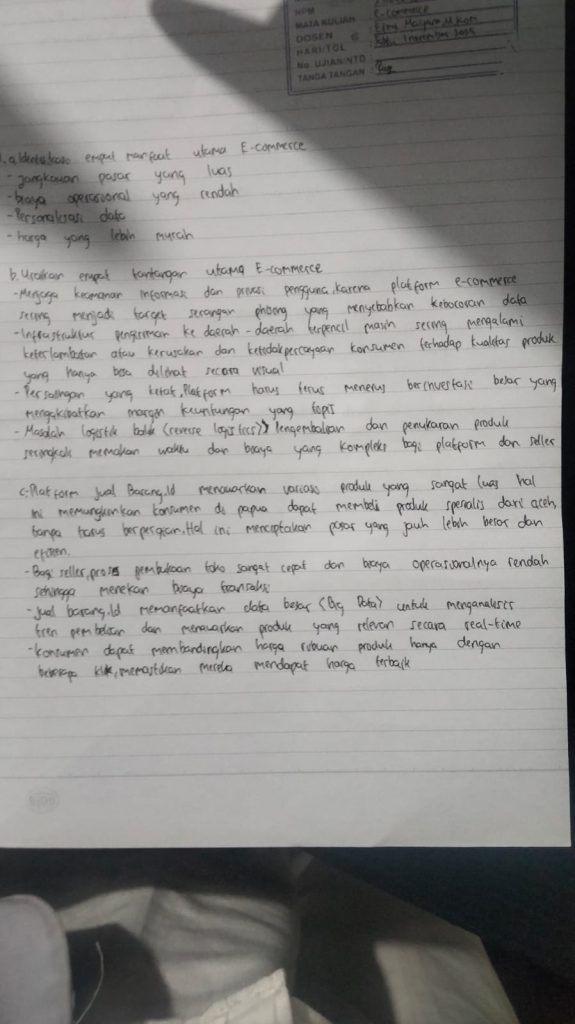 NPM
MATA KULIAH : E-commerce
DOSEN
HARI/TGL :
No. UJIAN/NTD :
TANDA TANGAN :
1. a. Identifikasi empat manfaat utama E-commerce
- jangkauan pasar yang luas
- biaya operasional yang rendah
- Personalisasi data
- harga yang lebih murah
b. Uraikan empat tantangan utama E-commerce
- Menjaga keamanan informasi dan privasi pengguna, karena platform e-commerce
sering menjadi target serangan phising yang menyebabkan kebocoran data
- Infrastruktur pengiriman ke daerah-daerah terpencil masih sering mengalami
keterlambatan atau kerusakan dan ketidakpercayaan konsumen terhadap kualitas produk
yang hanya bisa dilihat secara visual
- Persaingan yang ketat, Platform harus terus menerus berinvestasi besar yang
mengakibatkan margin keuntungan yang tipis
- Masalah logistik balik (reverse logistics)) Pengembalian dan penukaran produk
seringkali memakan waktu dan biaya yang kompleks bagi platform dan seller
c. Platform jual Barang.Id menawarkan variasi produk yang sangat luas hal
ini memungkinkan konsumen di papua dapat membeli produk spesialis dari aceh,
tanpa harus berpergian. Hal ini menciptakan pasar yang jauh lebih besar dan
efisien.
- Bagi seller, proses pembukaan toko sangat cepat dan biaya operasionalnya rendah
sehingga menekan biaya transaksi
- jual barang.Id memanfaatkan data besar (Big Data) untuk menganalisis
tren pembelian dan menawarkan produk yang relevan secara real-time
- konsumen dapat membandingkan harga ribuan produk hanya dengan
beberapa klik, memastikan mereka mendapat harga terbaik